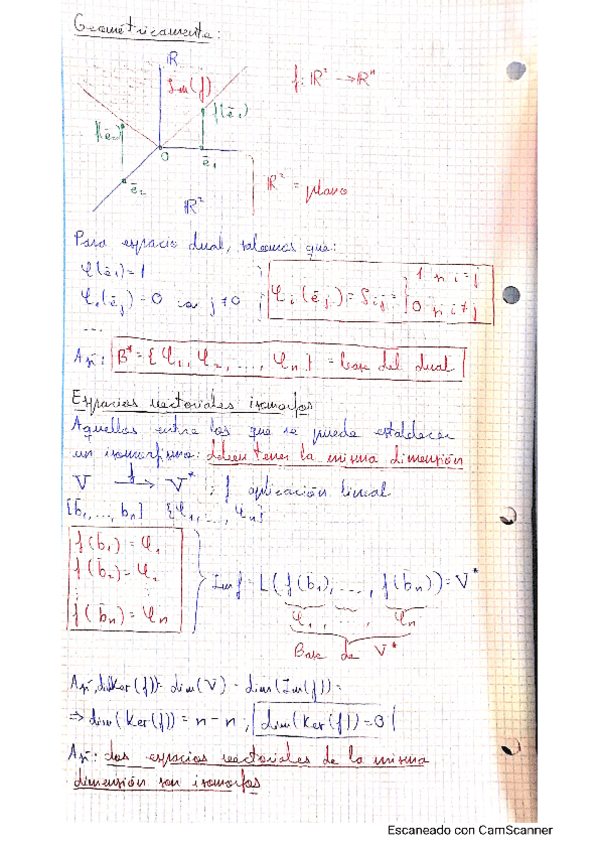 Geométricamente:
ℝ
Im(f)
f: ℝ² → ℝⁿ
f(ē₁)
f(ē₂)
0
ē₁
ē₂
ℝ²
ℝ² = plano
Para espacio dual, sabemos que:
φ(ē₁) = 1
φ₁(ēⱼ) = 0 j ≠ 0 ;
φᵢ(ēⱼ) = δᵢⱼ = { 1 si i=j
0 si i≠j
...
Así: B* = {φ₁, φ₂, ..., φₙ} = base del dual
Espacios vectoriales isomorfos
Aquellos entre los que se puede establecer
un isomorfismo: deben tener la misma dimensión
V →f V* ; f aplicación lineal
[b̄₁, ..., b̄ₙ] {φ₁, ..., φₙ}
f(b̄₁) = φ₁
f(b̄₂) = φ₂
⋮
f(b̄ₙ) = φₙ
Im f = L(f(b̄₁), ..., f(b̄ₙ)) = V*
φ₁, ..., φₙ
Base de V*
Así, dim(Ker(f)) = dim(V) - dim(Im(f)) =
⇒ dim(Ker(f)) = n - n, dim(Ker(f)) = 0
Así: dos espacios vectoriales de la misma
dimensión son isomorfos
Escaneado con CamScanner